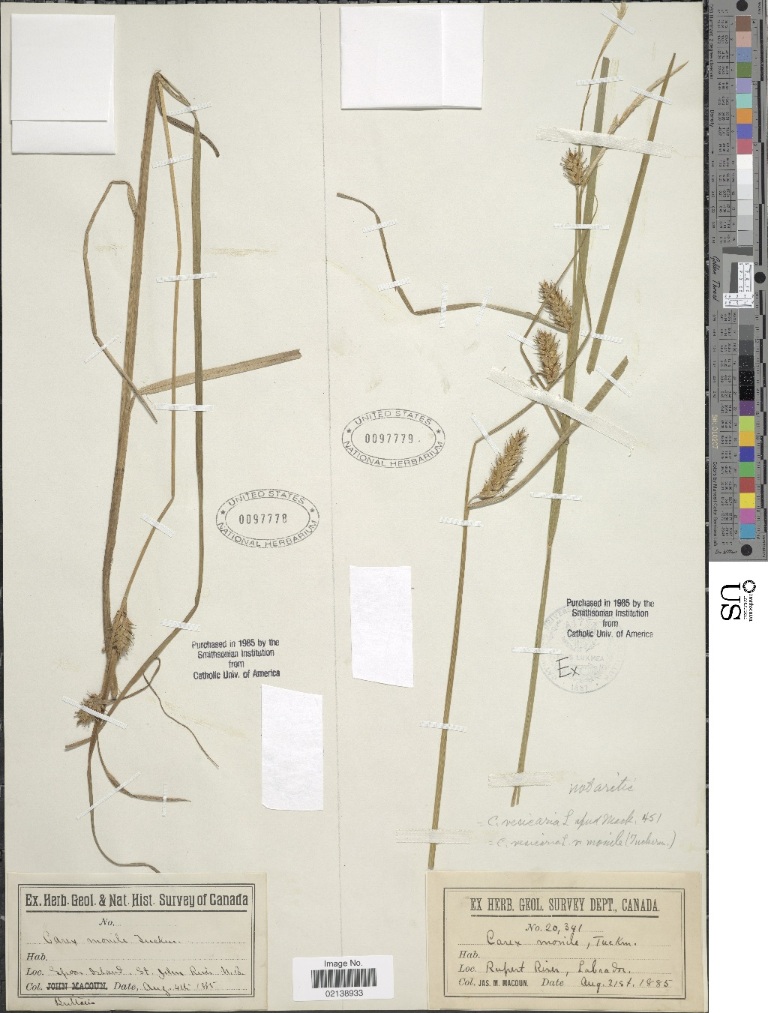 UNITED STATES
0097779.
NATIONAL HERBARIUM
UNITED STATES
0097778
NATIONAL HERBARIUM
Purchased in 1965 by the
Smithsonian Institution
from
Catholic Univ. of America
Purchased in 1965 by the
Smithsonian Institution
from
Catholic Univ. of America
Ex
not arctic
= C. vesicaria L. apud Mack. 451
= C. vesicaria L. v. monile (Tuckerm.)
Ex. Herb. Geol. & Nat. Hist. Survey of Canada
No.
Carex monile Tuckm.
Hab.
Loc. Island St. John River N.B.
Col. JOHN MACOUN. Date, Aug. 4th 1885
Image No.
02138933
EX HERB. GEOL. SURVEY DEPT., CANADA.
No. 20,391
Carex monile, Tuckm.
Hab.
Loc. Rupert River, Labrador.
Col. JAS. M. MACOUN. Date Aug. 21st, 1885
US